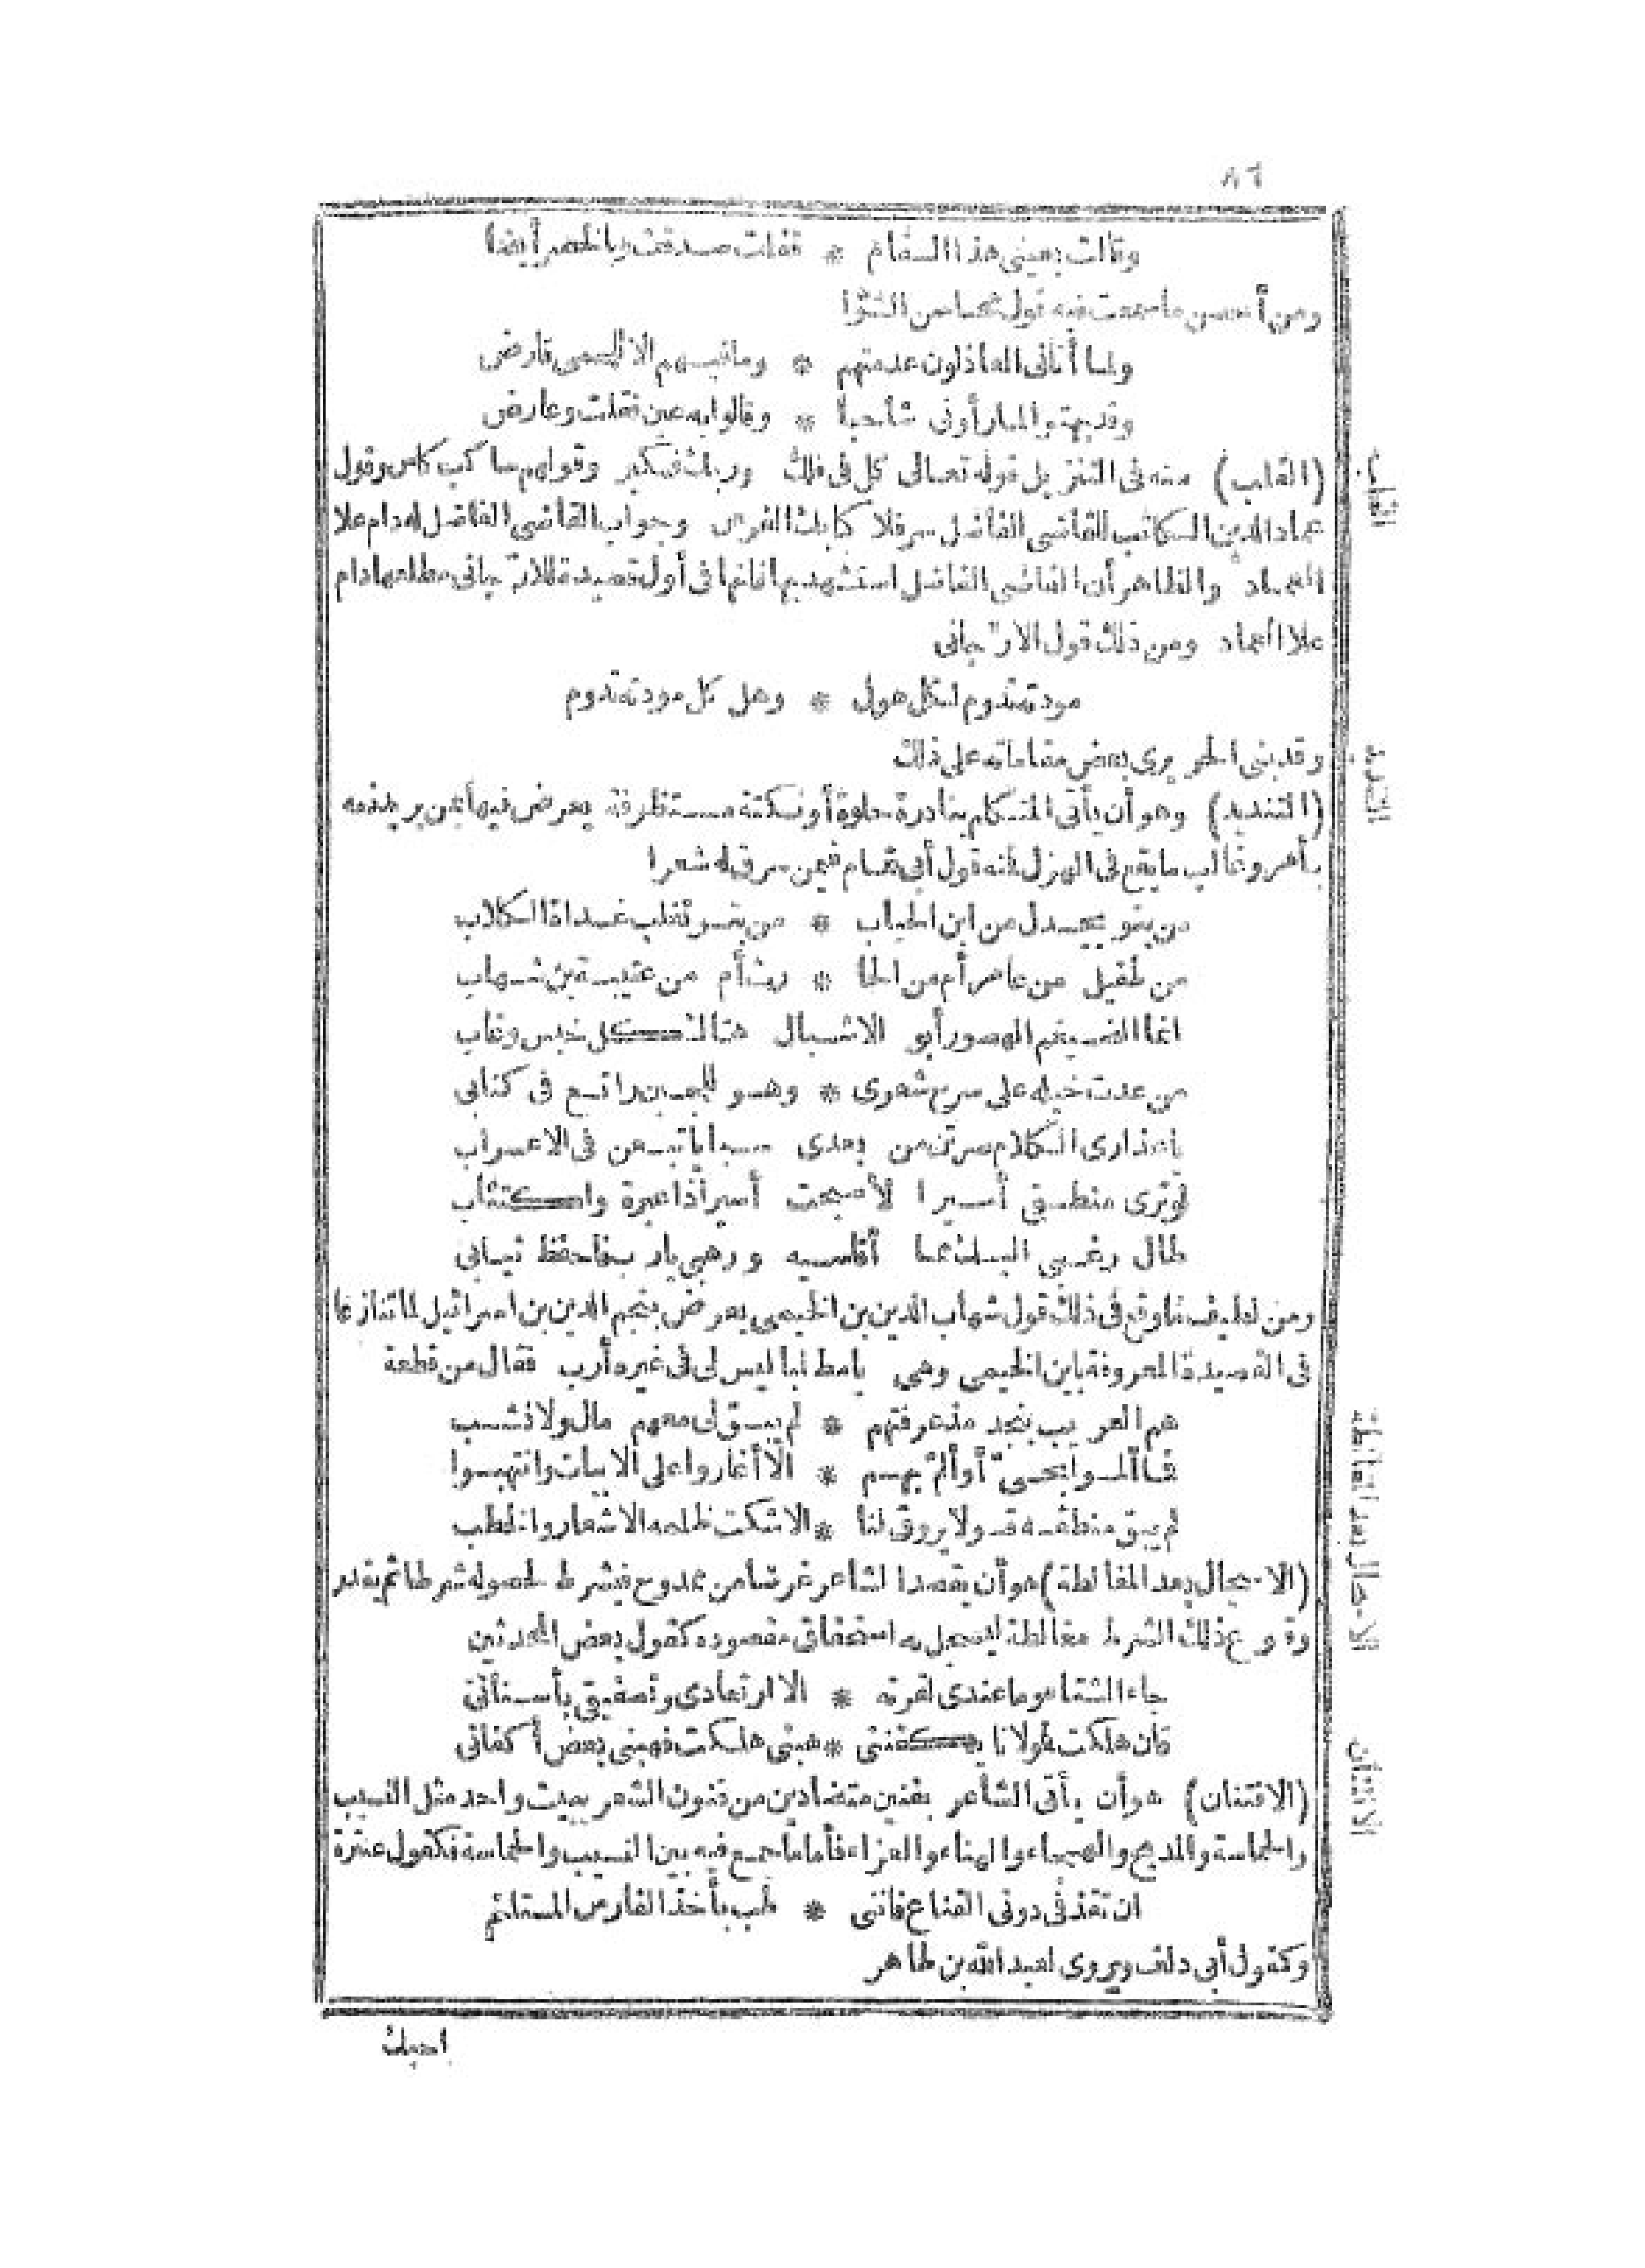 ٨٦
وقالت بعيني هذا السقام * فقلت صدقت وبالخصر أيضا
ومن أحسن ما سمعت فيه قول محاسن الشوّا
ولما أتاني العاذلون عدمتهم * وما فيهم الا للحمى قارض
وقد بهتوا لما رأوني شاحبا * وقالوا به عين فقلت وعارض
القلب
(القلب) منه في التنزيل قوله تعالى كل في فلك وربك فكبر وقولهم ساكب كاس وقول
عماد الدين الكاتب للقاضي الفاضل سر فلا كبا بك الفرس وجواب القاضي الفاضل له دام علا
العماد والظاهر أن القاضي الفاضل استشهد بها فانها في أول قصيدة للارّجاني مطلعها دام
علا العماد ومن ذلك قول الارّجاني
مودته تدوم لكل هول * وهل كل مودته تدوم
وقد بنى الحريري بعض مقاماته على ذلك
(التنديد) وهو أن يأتي المتكلم بنادرة حلوة أو نكتة مستظرفة يعرض فيها بمن يريد ذمه
بأمر وغالب ما يقع في الهزل فمنه قول أبي تمام فيمن سرق له شعرا
من بنو بحدل من ابن الحباب * من بنو تغلب غداة الكلاب
من طفيل من عامر أم من الحا * رث أم من عتيبة بن شهاب
انما الضيغم الهصور أبو الاشبال هتاك كل خيس وغاب
من عدت خيله على سرح شعري * وهو للحين راتع في كتابي
يا عذارى الكلام صرتن من بعدي سبايا تبعن في الاعراب
لو ترى منطقي أسيرا لأصبحت أسيرا ذا عبرة واكتئاب
طال رغبي اليك مما أقاسيه ورهبي يارب فاحفظ ثيابي
ومن لطيف ما وقع في ذلك قول شهاب الدين بن الخيمي يعرض بنجم الدين بن اسرائيل لما تنازعا
في القصيدة المعروفة بابن الخيمي وهي يا مطلبا ليس لي في غيره أرب فقال من قطعة
هم العريب بنجد مذ عرفتهم * لم يبق لي معهم مال ولا نشب
فما ألموا بحيّ أو ألمّ بهم * الا أغاروا على الابيات وانتهبوا
لم يبق منطقه قولا يروق لنا * الا شكت ظلمه الاشعار والخطب
الاسجال بعد المغالطة
(الاسجال بعد المغالطة) هو أن يقصد الشاعر غرضا من ممدوح فيشرط لحصوله شرطا ثم يقدر
وقوع ذلك الشرط مغالطة ليسجل به استحقاق مقصوده كقول بعض المحدثين
جاء الشتاء وما عندي لقرته * الا ارتعادي وتصفيقي بأسناني
فان هلكت فمولانا يكفنني * هبني هلكت فهبني بعض أكفاني
الافتنان
(الافتنان) هو أن يأتي الشاعر بفنين متضادين من فنون الشعر ببيت واحد مثل النسيب
والحماسة والمديح والهجاء والهناء والعزاء فأما ما جمع فيه بين النسيب والحماسة فكقول عنترة
ان تغدفي دوني القناع فانني * طب بأخذ الفارس المستلئم
وكقول أبي دلف ويروى لعبد الله بن طاهر
احبك